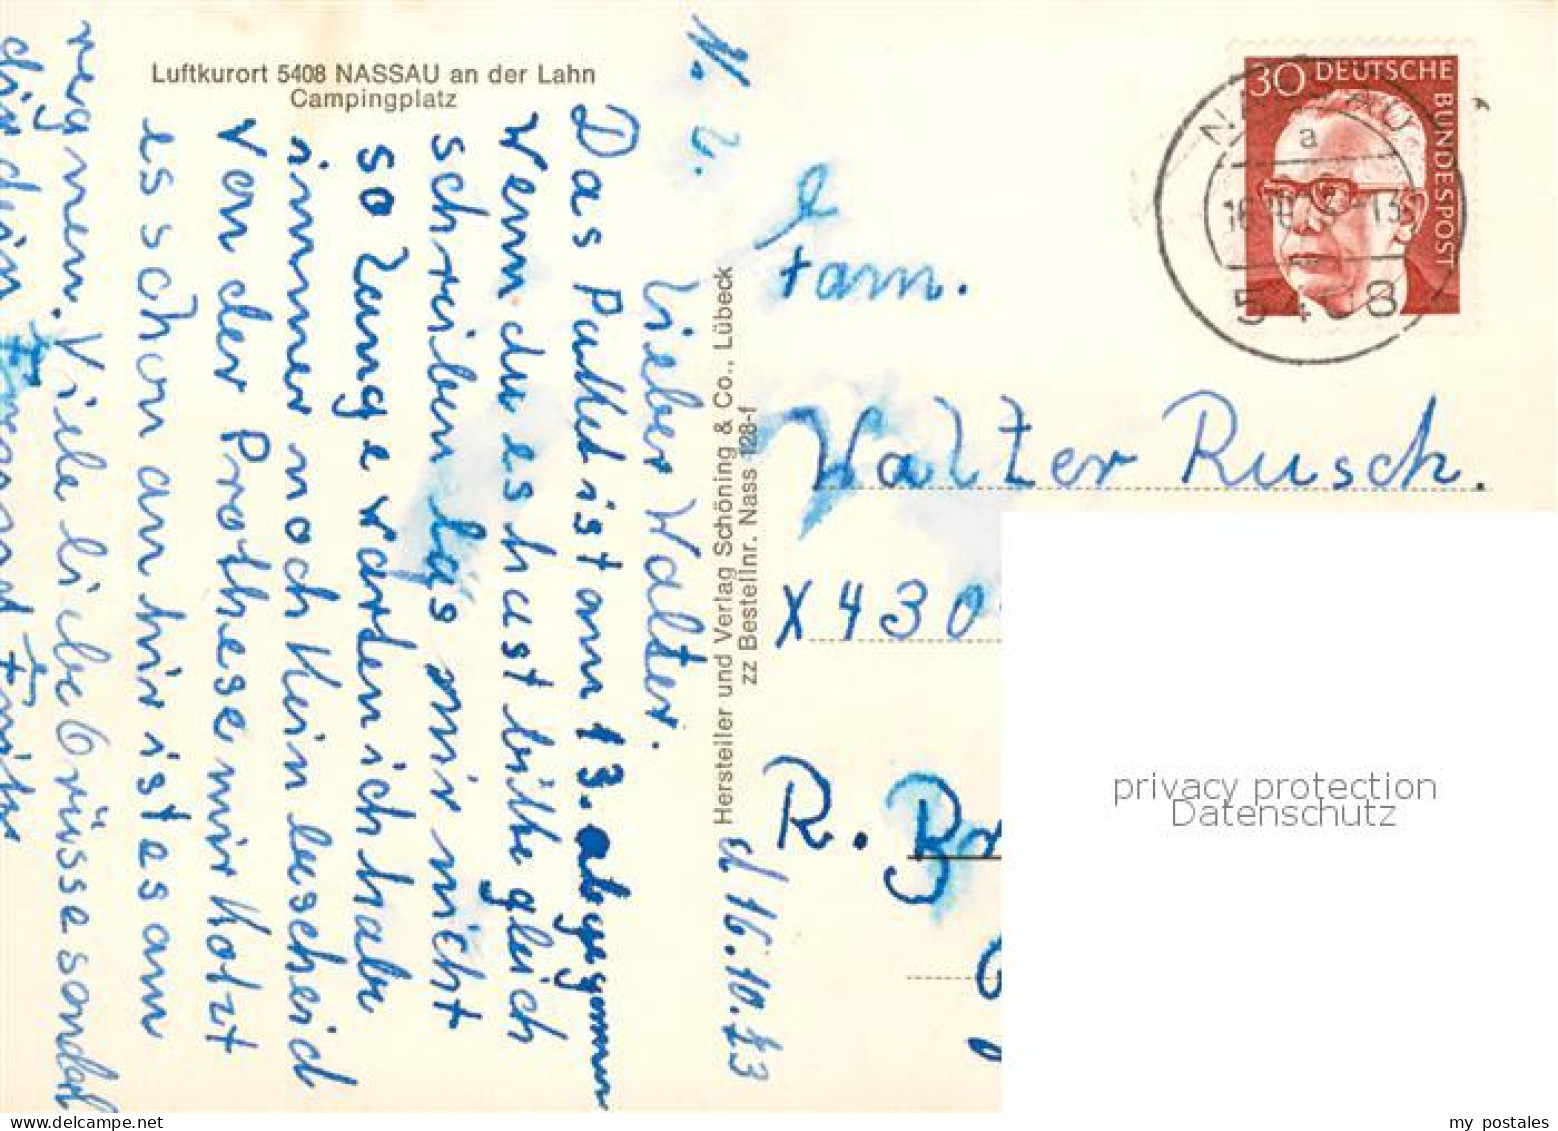 Luftkurort 5408 NASSAU an der Lahn
Campingplatz
d 16.10.73
Lieber Walter.
Das Packet ist am 13. abgegangen
Wenn du es hast bitte gleich
schreiben las mir nicht
so lange warten ich habe
immer noch kein bescheid
von der Prothese mir kotzt
es schon an hir ist es am
regnen. Viele liebe Grüsse sendet
dir dein
Hersteller und Verlag Schöning & Co., Lübeck
zz Bestellnr. Nass 128-f
30 DEUTSCHE BUNDESPOST
NASSAU
a
16.10.73-13
5408
Fam.
Walter Rusch.
X430
R. Br
privacy protection
Datenschutz
my postales